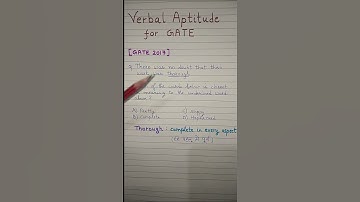 Verbal Aptitude
for GATE
[GATE 2017]
Q. There was no doubt that their
work was Thorough.
of the words below is closest
meaning to the underlined word
above?
A) Pretty
B) Complete
C) Sloppy
D) Haphazard
Thorough : complete in every aspect